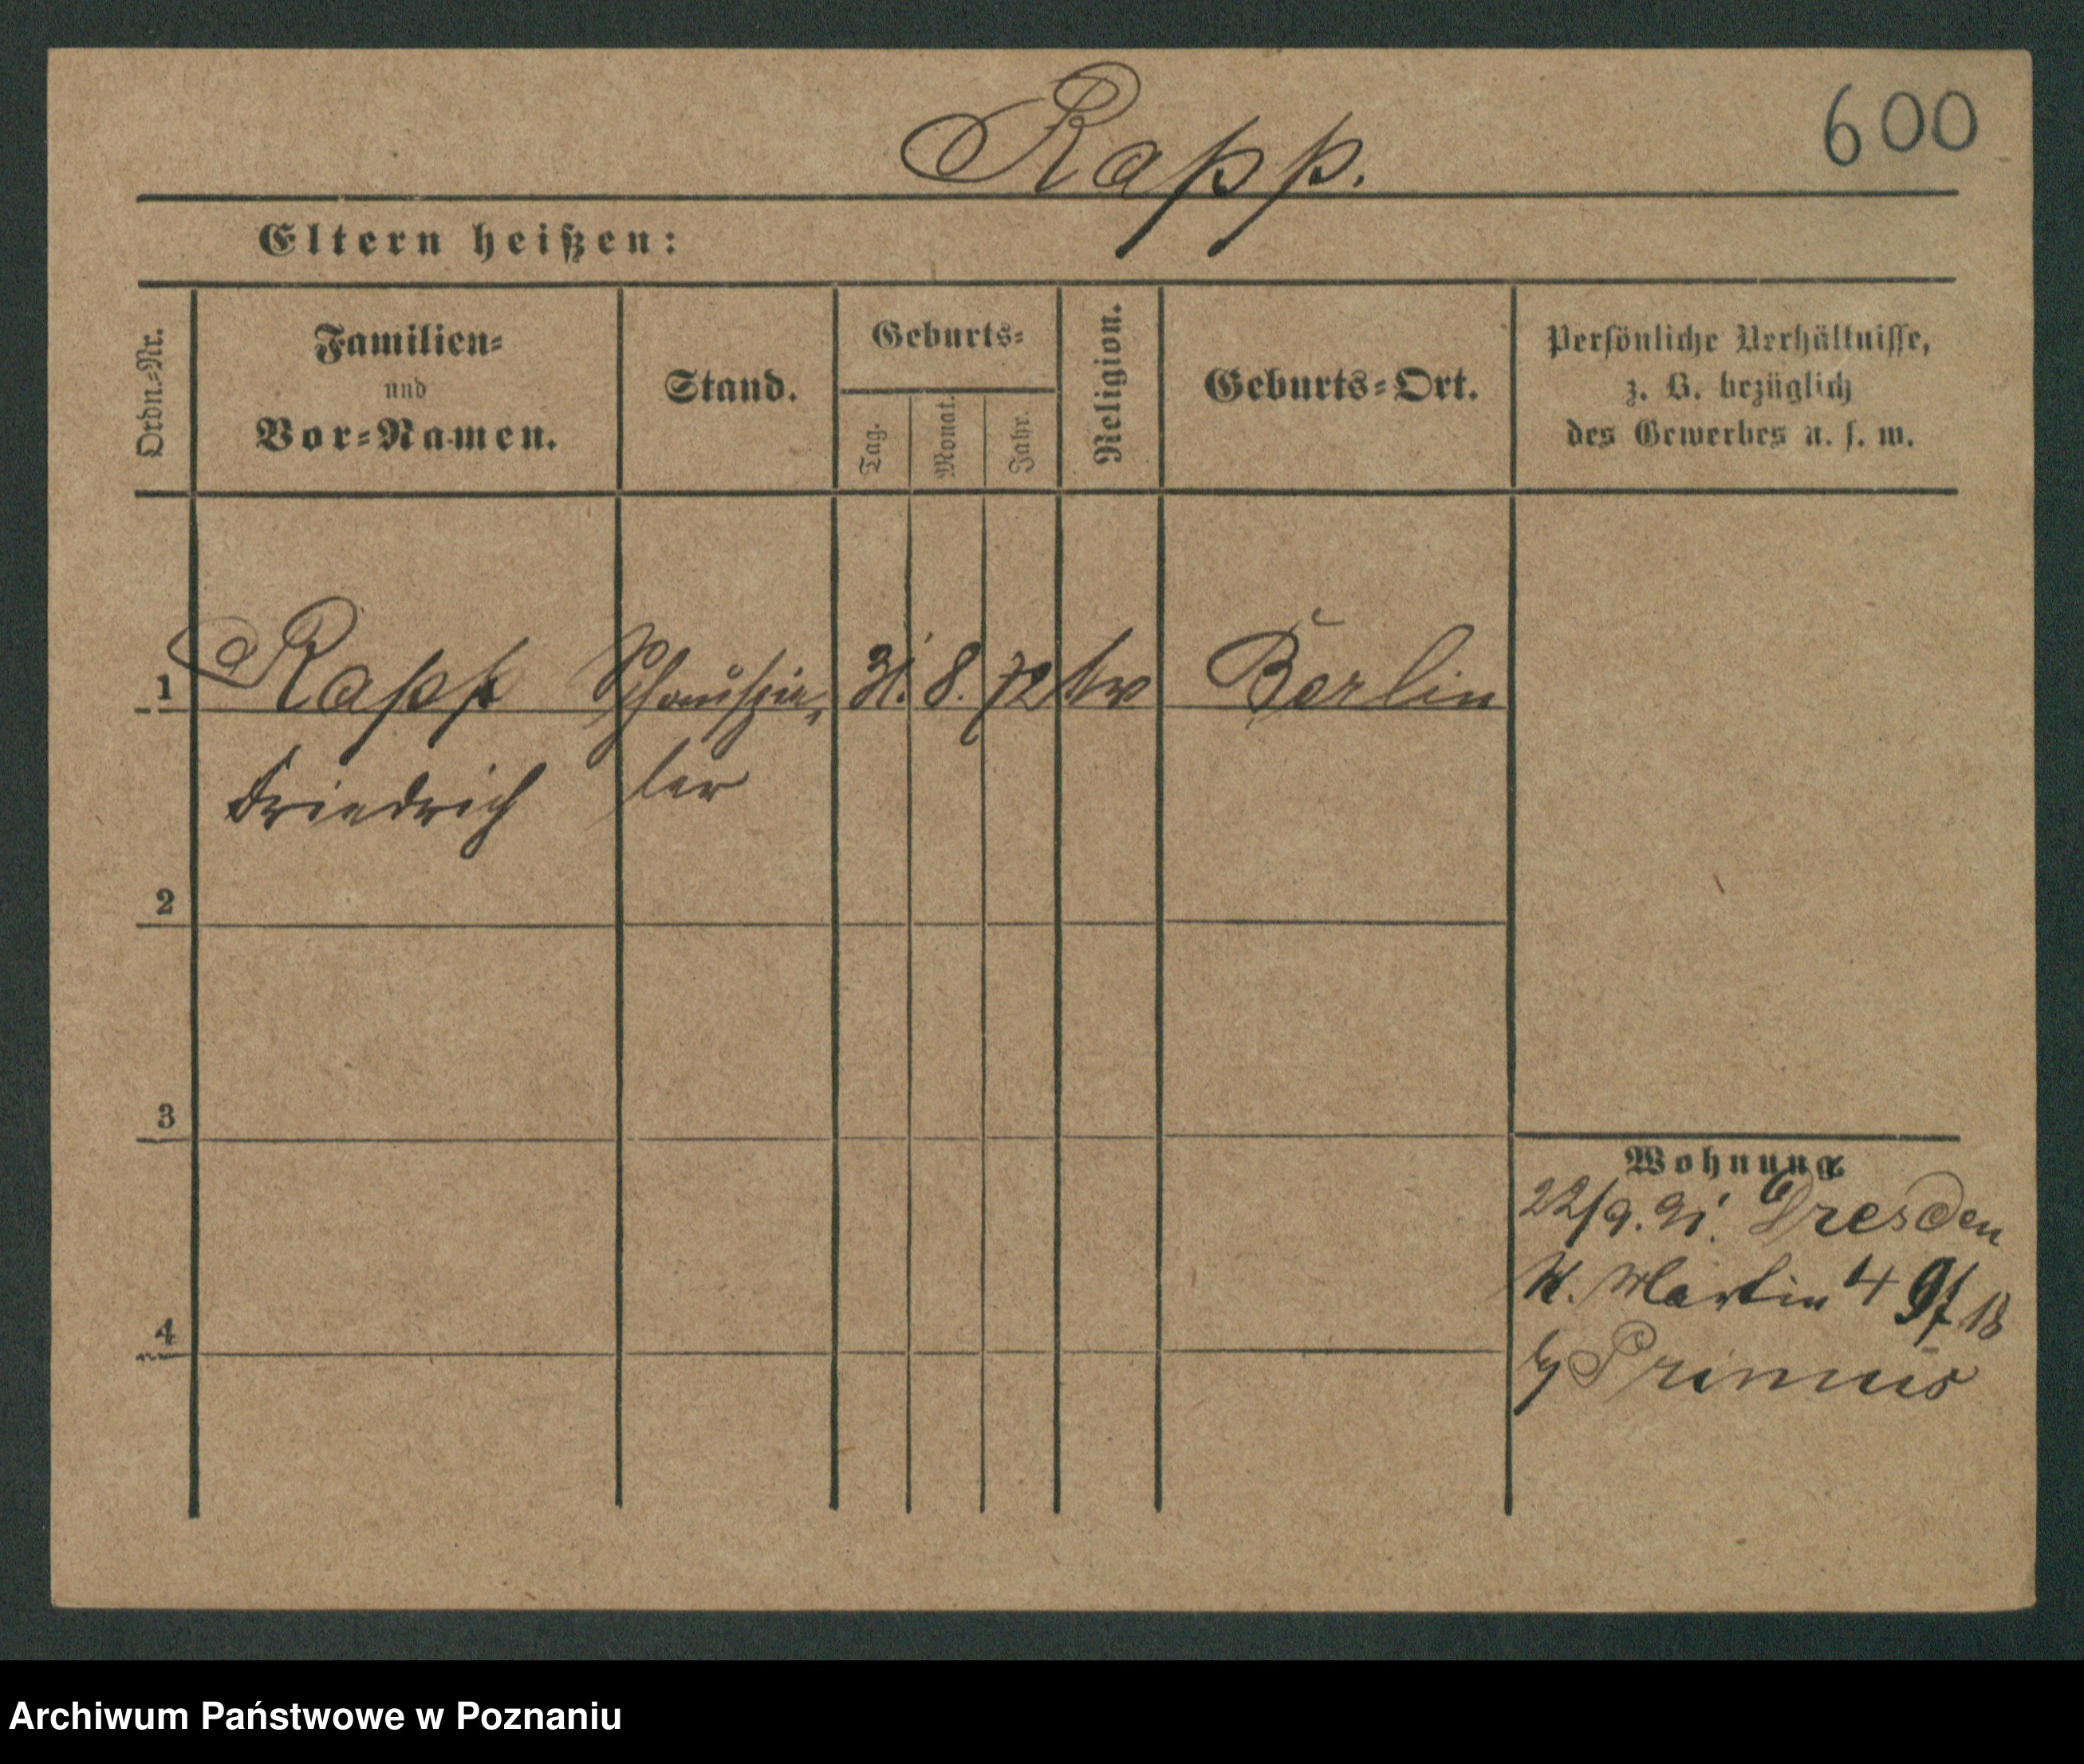 Rapp.
600
Eltern heißen:
Ordn.-Nr.
Familien-
und
Vor-Namen.
Stand.
Geburts-
Tag.
Monat.
Jahr.
Religion.
Geburts-Ort.
Persönliche Verhältnisse,
z. B. bezüglich
des Gewerbes u. s. w.
1 Rapp Schauspie- 31. 8. 72 Berlin
Friedrich ler
2
3
4
Wohnung
22/9. 91. Dresden
St. Martin 4
Primus
Archiwum Państwowe w Poznaniu